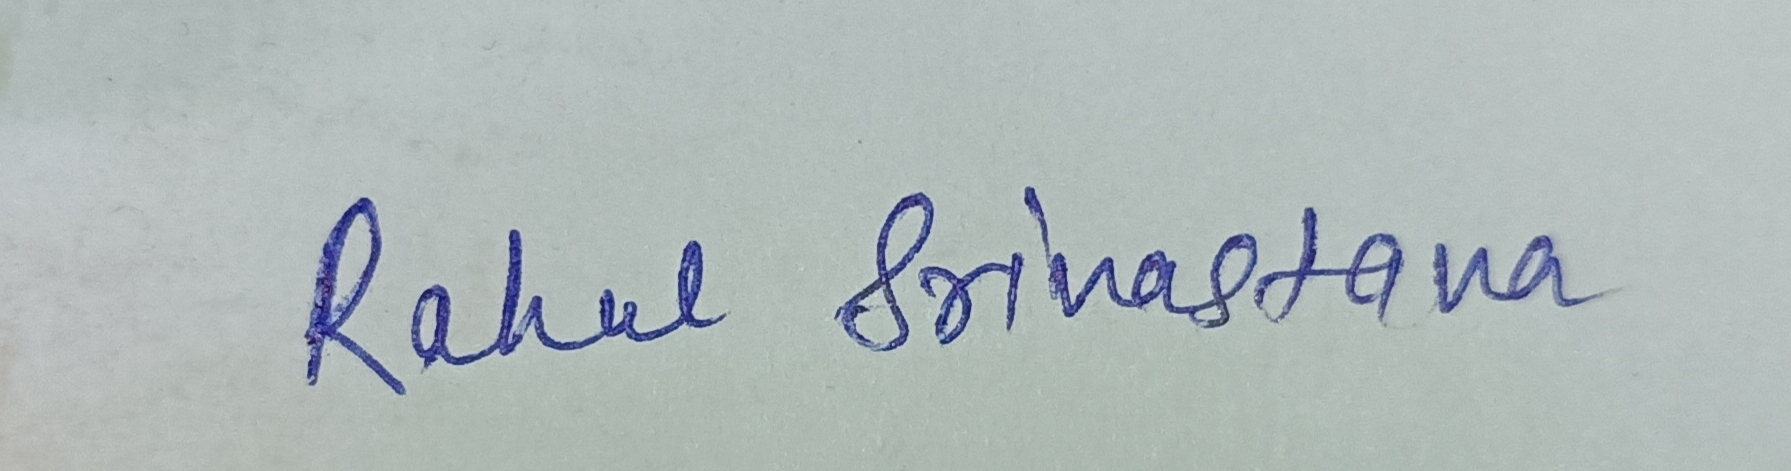 Rahul Srivastava